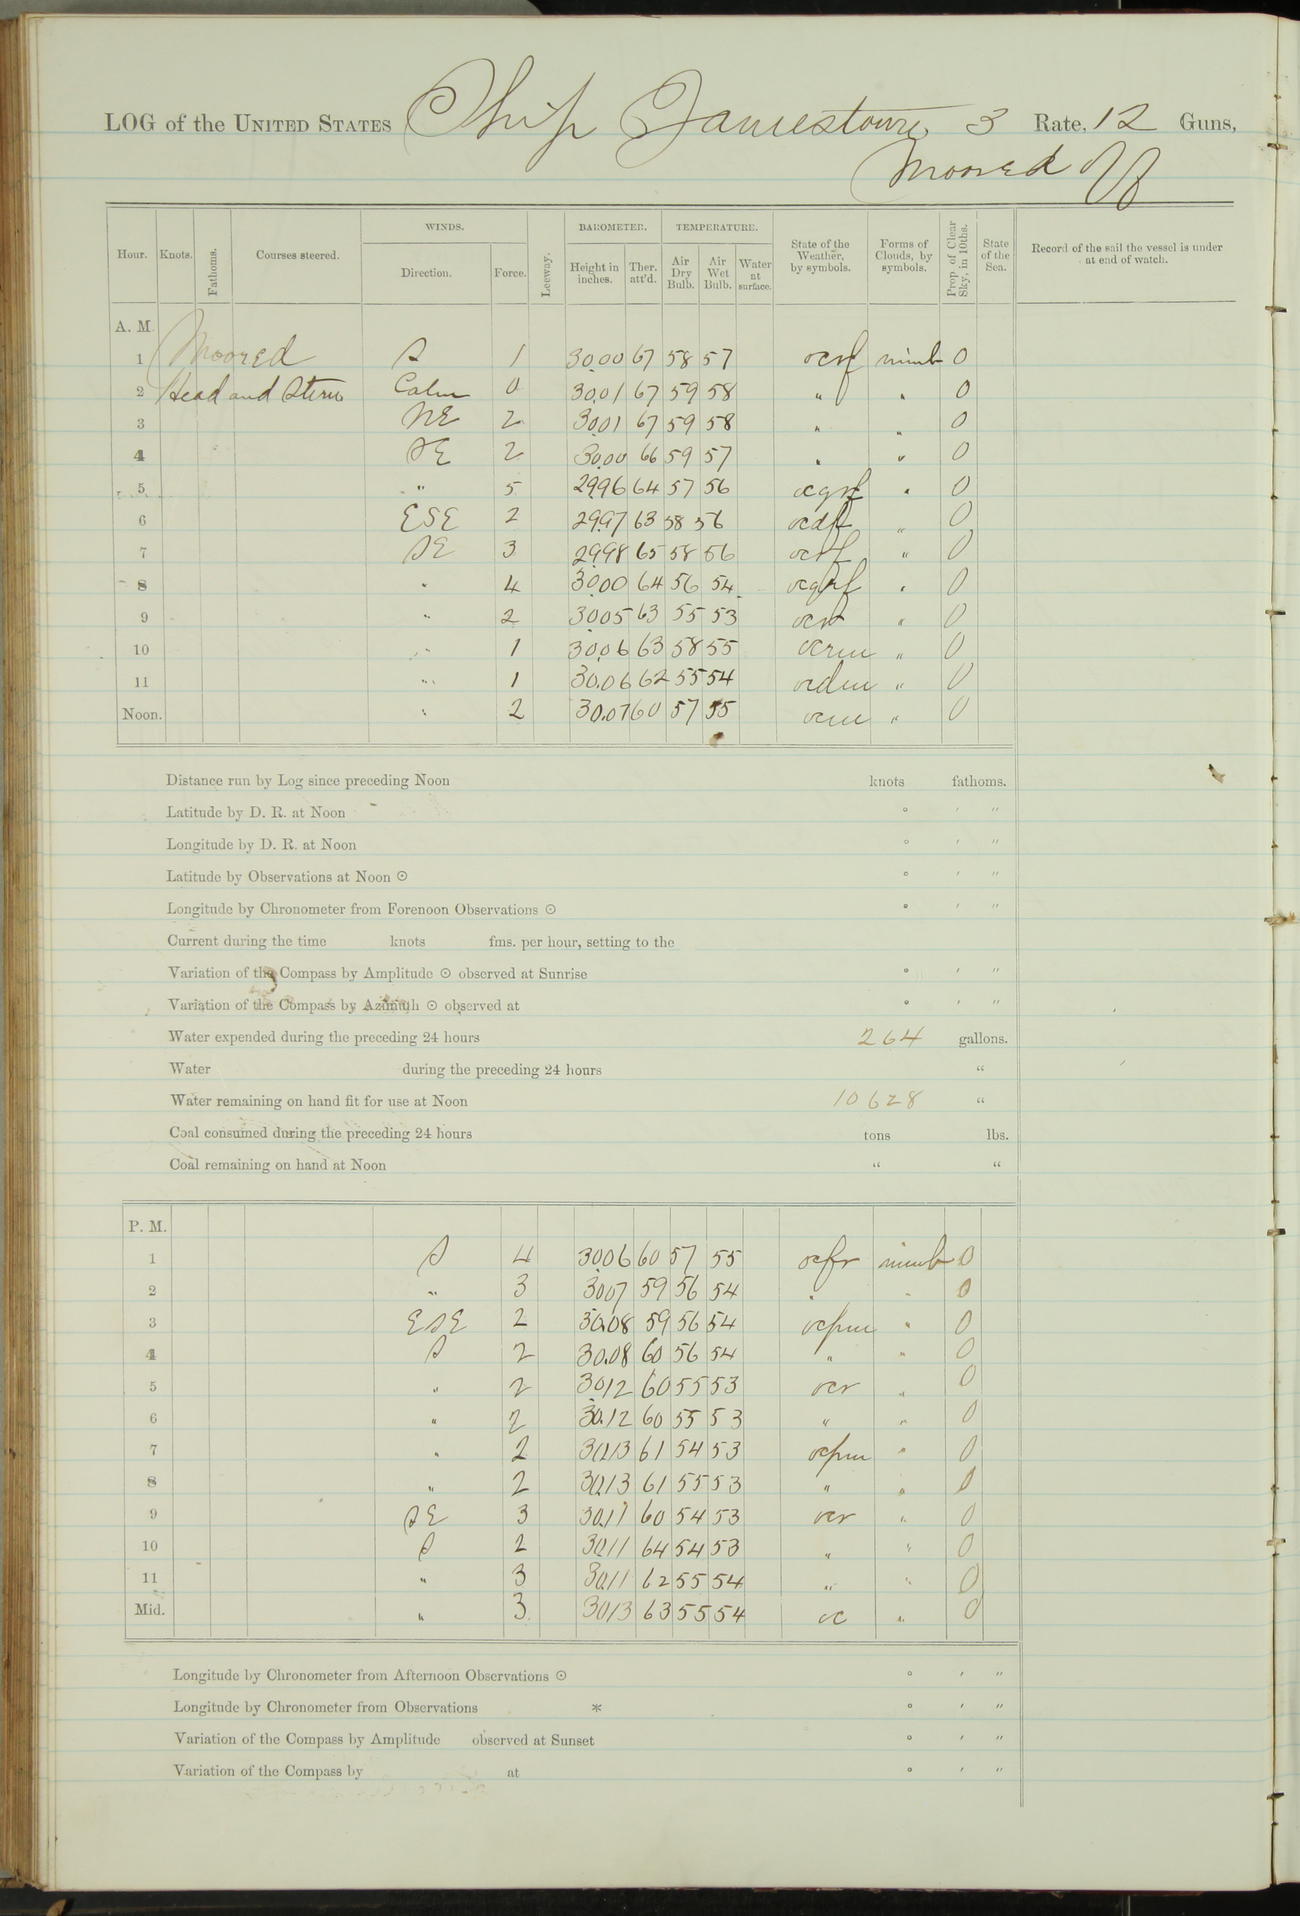 LOG of the UNITED STATES Ship Jamestown, 3 Rate, 12 Guns,
Moored off
Hour. Knots. Fathoms. Courses steered. WINDS. Direction. Force. Leeway. BAROMETER. Height in inches. Ther. att'd. TEMPERATURE. Air Dry Bulb. Air Wet Bulb. Water at surface. State of the Weather, by symbols. Forms of Clouds, by symbols. Prop. of Clear Sky, in 10ths. State of the Sea. Record of the sail the vessel is under at end of watch.
A. M.
1 Moored S 1 30.00 67 58 57 ocrf nimb 0
2 Head and Stern Calm 0 30.01 67 59 58 " " 0
3 NE 2 30.01 67 59 58 " " 0
4 SE 2 30.00 66 59 57 " " 0
5 " 5 29.96 64 57 56 ocqrf " 0
6 ESE 2 29.97 63 58 56 ocdf " 0
7 SE 3 29.98 65 58 56 ocrf " 0
8 " 4 30.00 64 56 54 ocqrf " 0
9 " 2 30.05 63 55 53 ocr " 0
10 " 1 30.06 63 58 55 ocrm " 0
11 " 1 30.06 62 55 54 ocdm " 0
Noon. " 2 30.07 60 57 55 ocm " 0
Distance run by Log since preceding Noon knots fathoms.
Latitude by D. R. at Noon ° ' "
Longitude by D. R. at Noon ° ' "
Latitude by Observations at Noon ☉ ° ' "
Longitude by Chronometer from Forenoon Observations ☉ ° ' "
Current during the time knots fms. per hour, setting to the
Variation of the Compass by Amplitude ☉ observed at Sunrise ° ' "
Variation of the Compass by Azimuth ☉ observed at ° ' "
Water expended during the preceding 24 hours 264 gallons.
Water during the preceding 24 hours "
Water remaining on hand fit for use at Noon 10628 "
Coal consumed during the preceding 24 hours tons lbs.
Coal remaining on hand at Noon " "
P. M.
1 S 4 30.06 60 57 55 ocfr nimb 0
2 " 3 30.07 59 56 54 " " 0
3 ESE 2 30.08 59 56 54 ocpm " 0
4 S 2 30.08 60 56 54 " " 0
5 " 2 30.12 60 55 53 ocr " 0
6 " 2 30.12 60 55 53 " " 0
7 " 2 30.13 61 54 53 ocpm " 0
8 " 2 30.13 61 55 53 " " 0
9 SE 3 30.11 60 54 53 ocr " 0
10 S 2 30.11 64 54 53 " " 0
11 " 3 30.11 62 55 54 " " 0
Mid. " 3 30.13 63 55 54 oc " 0
Longitude by Chronometer from Afternoon Observations ☉ ° ' "
Longitude by Chronometer from Observations * ° ' "
Variation of the Compass by Amplitude observed at Sunset ° ' "
Variation of the Compass by at ° ' "